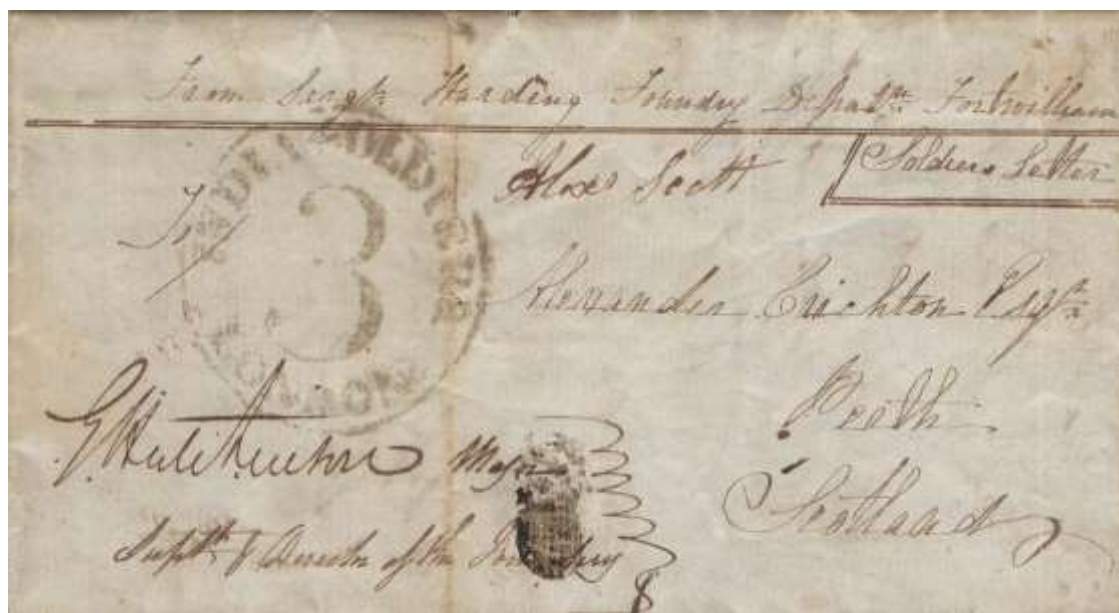 From Sergt Harding Foundry Depart Fortwilliam
Alexr Scott
Soldiers Letter
To
3
INDIA
Alexander Crichton Esqr
Perth
Scotland
G Hutchinson Major
Supt & Director of the Foundry
8